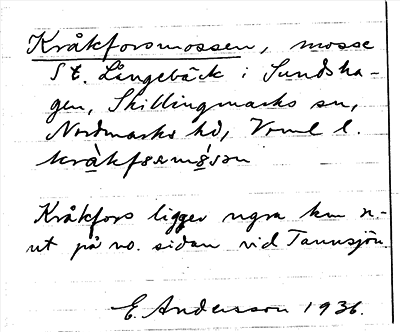 Kråkforsmossen, mosse
St. Långebäck i Sundsha-
gen, Skillingmarks sn,
Nordmarks hd, Vrml l.
kråkfors
Kråkfors ligger några km n-
ut på no. sidan vid Tannsjön.
E. Andersson 1936.